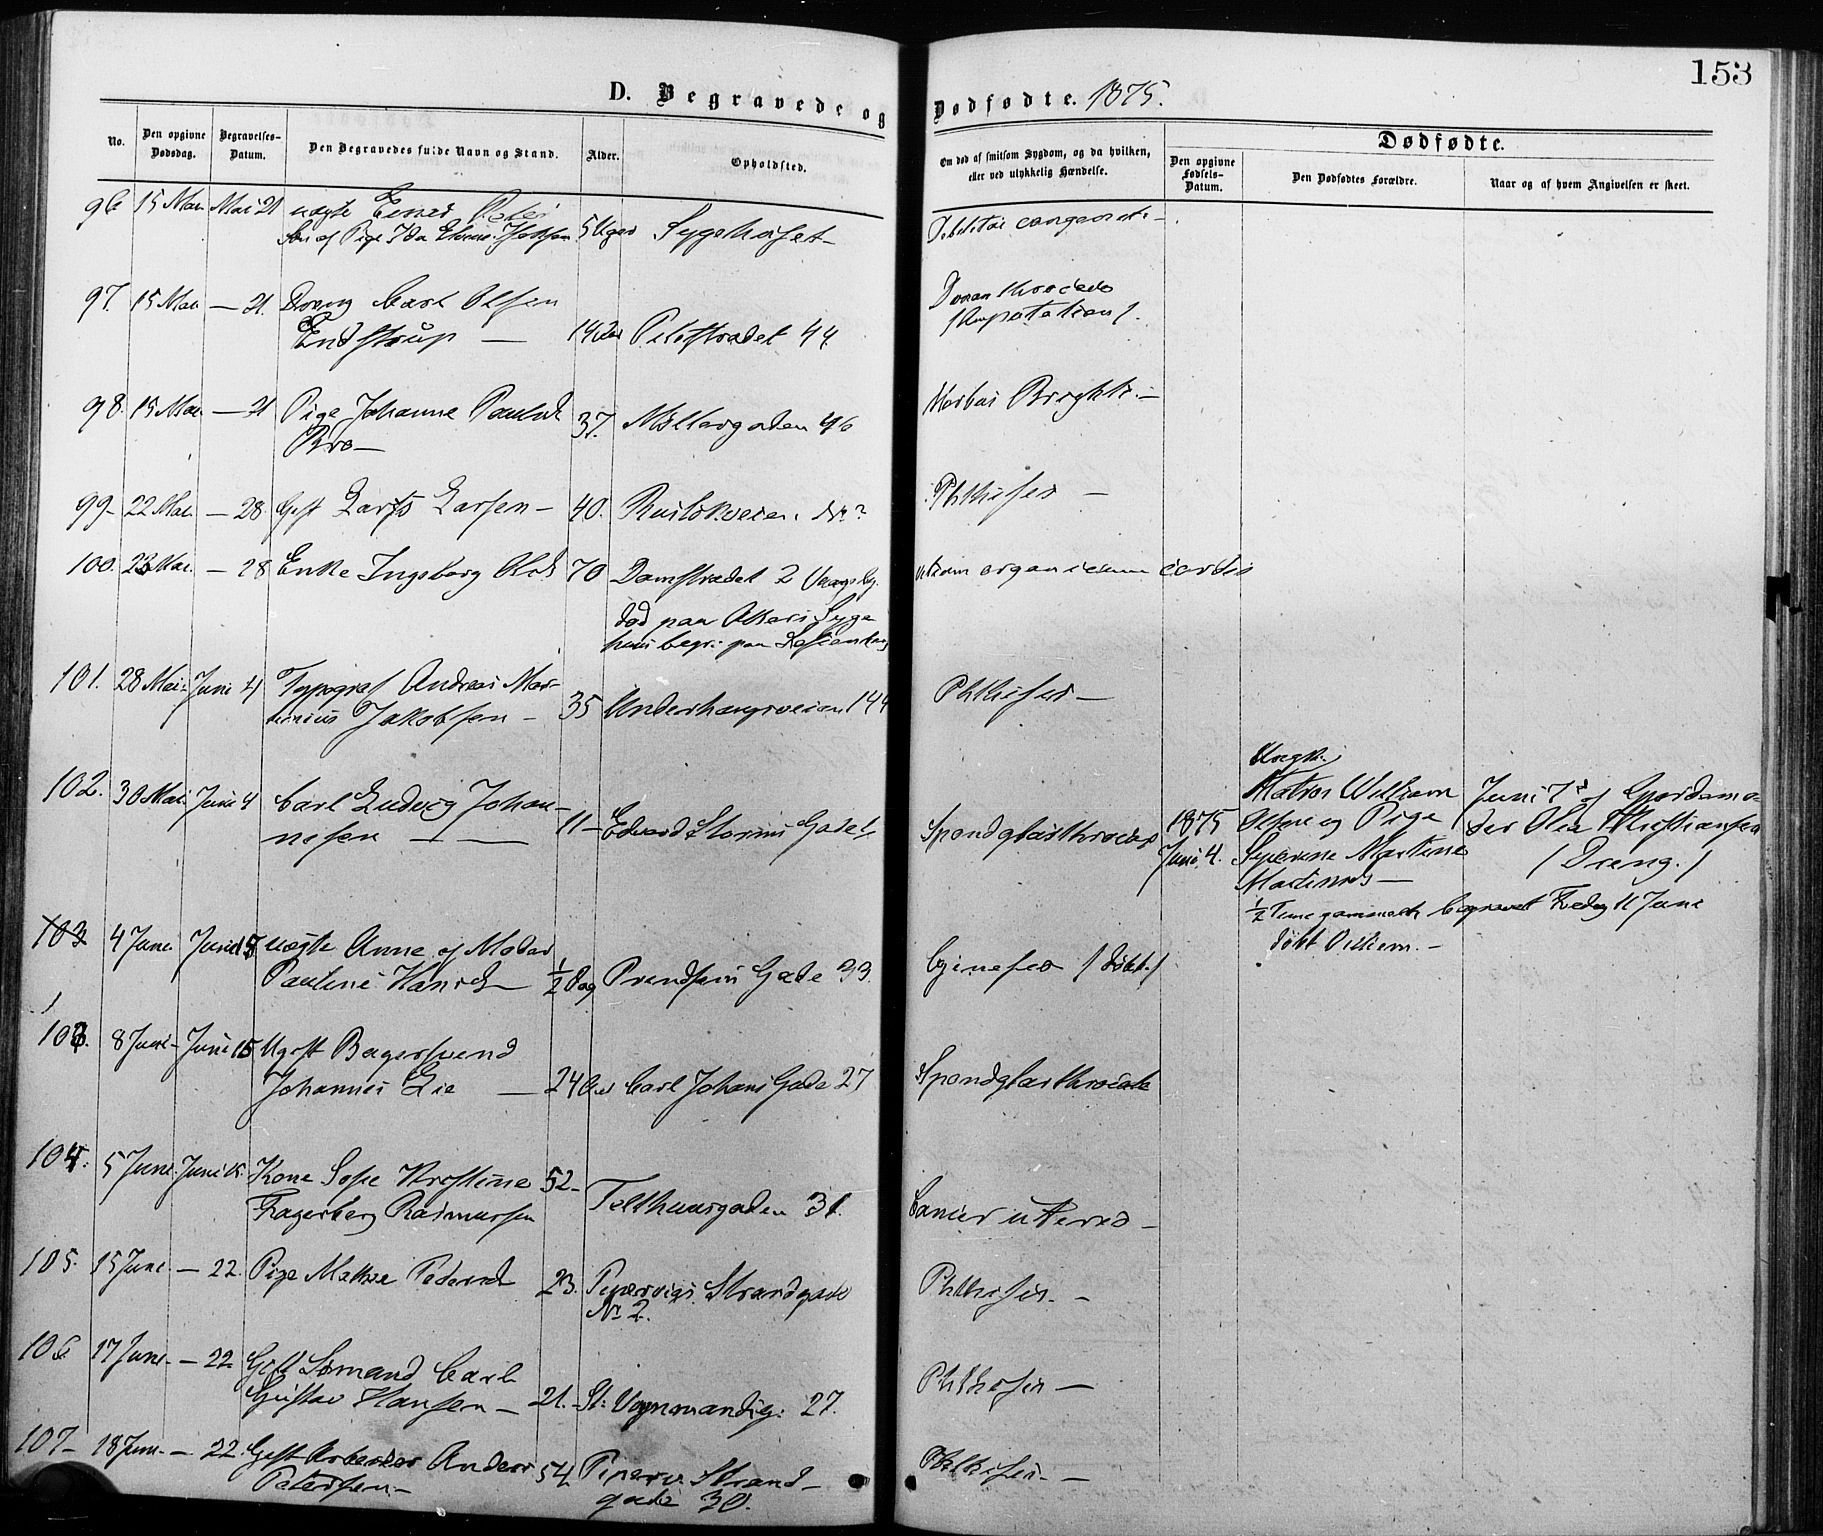 153
D. Begravede og Dødfødte. 1875.
No.
Den opgivne Dødsdag.
Begravelses-Datum.
Den Begravedes fulde Navn og Stand.
Alder.
Opholdsted.
Om død af smitsom Sygdom, og da hvilken,
eller ved ulykkelig Hændelse.
Dødfødte.
Den opgivne Fødsels-Datum.
Den Dødfødtes Forældre.
Naar og af hvem Angivelsen er skeet.
96 15 Mai Mai 21 uægte Peter
Søn af Pige Ida 5 Uger Sygehuset
97. 15 Mai — 21. Dreng Carl Olsen
Endstrup — 14 Aar Pilestrædet 44
98. 15 Mai. — 21 Pige Johanne
Bro — 37. Møllergaden 46
Morbus Brightii —
99 22 Mai. — 28 Gift Lars Larsen — 40. Ruseløkveien. No ?
Phthisis —
100. 23 Mai. — 28 Enke Ingeborg 70 Damstrædet 2
død paa Akers Syge
huus begr: paa
Vitium organicum cordis
101. 28 Mai. Juni 4 Typograf Andreas Mar-
tinius Jakobsen — 35 Underhaugsveien 144
Phthisis —
102. 30 Mai. Juni 4 Carl Ludvig Johan-
nesen — 11 — Edvard Storms Gade
Spondylarthrocace
1875
Juni 4.
Ungk.
Matros William
Olsen og Pige
Martine
Juni 7 af Gjordemo-
der Olea Kristiansen
(Dreng.)
1/2 Time gammelt begravet Fredag 11 Juni
døbt William. —
103 4 Juni uægte Anne af Moder
Pauline 1/2 Dag Gade 33.
(døbt.)
103. 8 Juni — Juni 15 Ugift Bagersvend
Johannes Lie — 24 Aar Carl Johans Gade 27
Spondylarthrocace
104. 5 Juni. Juni 15. Kone Sofie Kristine 52 —
Fagerberg Rasmussen Telthusgaden 31.
Cancer uteri —
105. 15 Juni — 22. Pige 23. Pipervigs Strandgade
No 2.
Phthisis. —
106 17 Juni. — 22 Gift Sømand Carl
Gustav Hansen — 21. St: Vognmandsg: 27.
Phthisis —
107 — 18 Juni. — 22. Gift Arbeider Anders 54 Piperv. Strand-
Petersen. — gade 30.
Phthisis. —